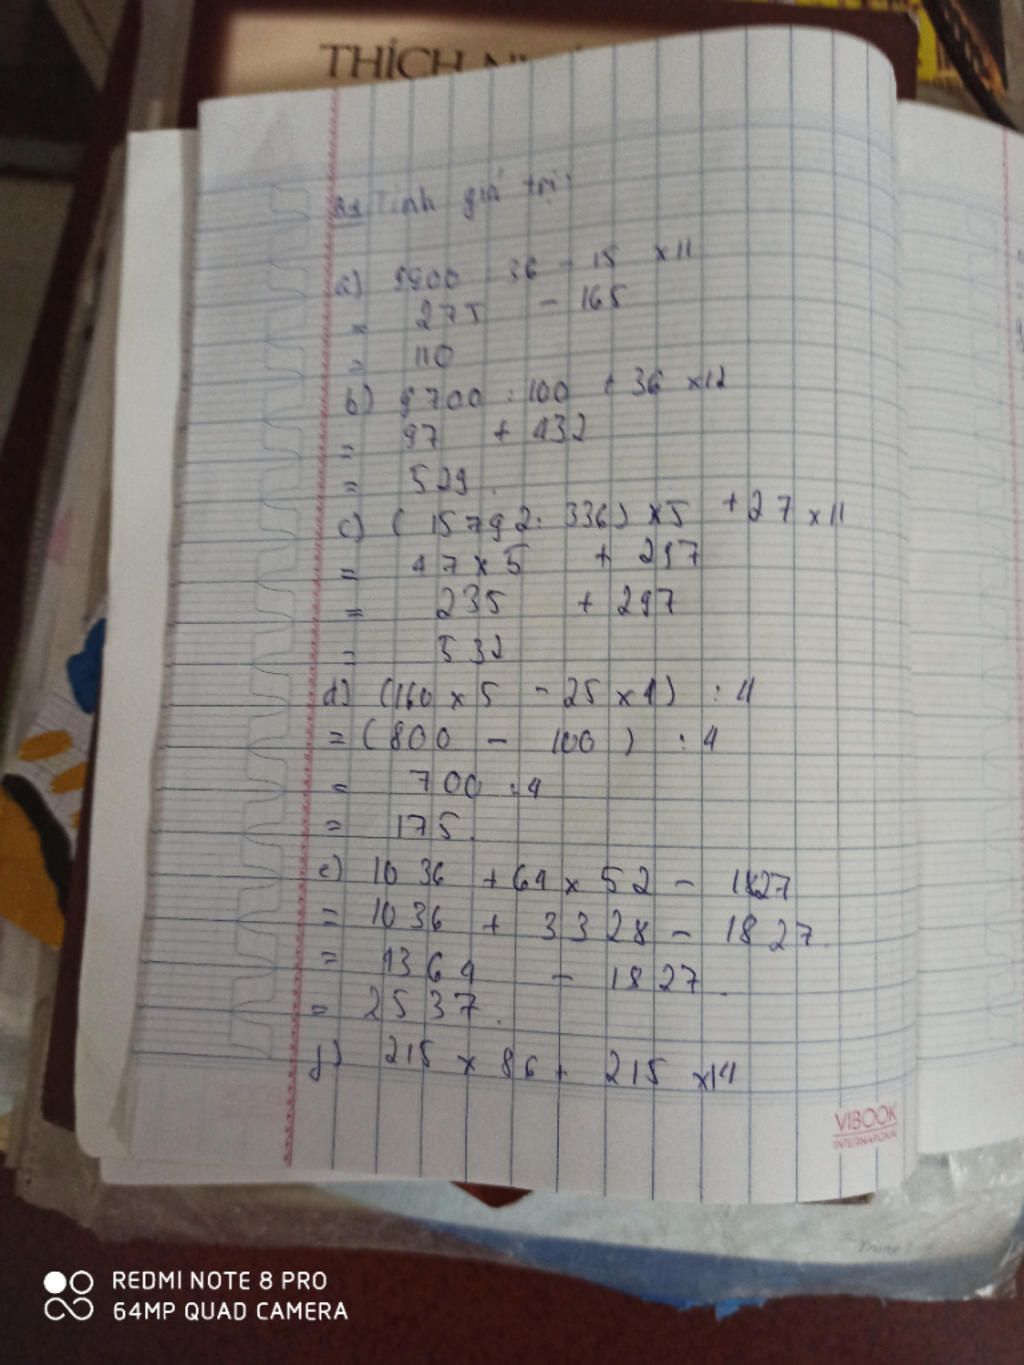 THÍCH
B1 Tính giá trị:
a) 9900 : 36 - 15 x 11
= 275 - 165
= 110
b) 9700 : 100 + 36 x 12
= 97 + 432
= 529.
c) (15792 : 336) x 5 + 27 x 11
= 47 x 5 + 297
= 235 + 297
= 532
d) (160 x 5 - 25 x 4) : 4
= (800 - 100) : 4
= 700 : 4
= 175.
e) 1036 + 64 x 52 - 1827
= 1036 + 3328 - 1827.
= 4364 - 1827.
= 2537.
g) 215 x 86 + 215 x 14
VIBOOK
INTERNATIONAL
REDMI NOTE 8 PRO
64MP QUAD CAMERA